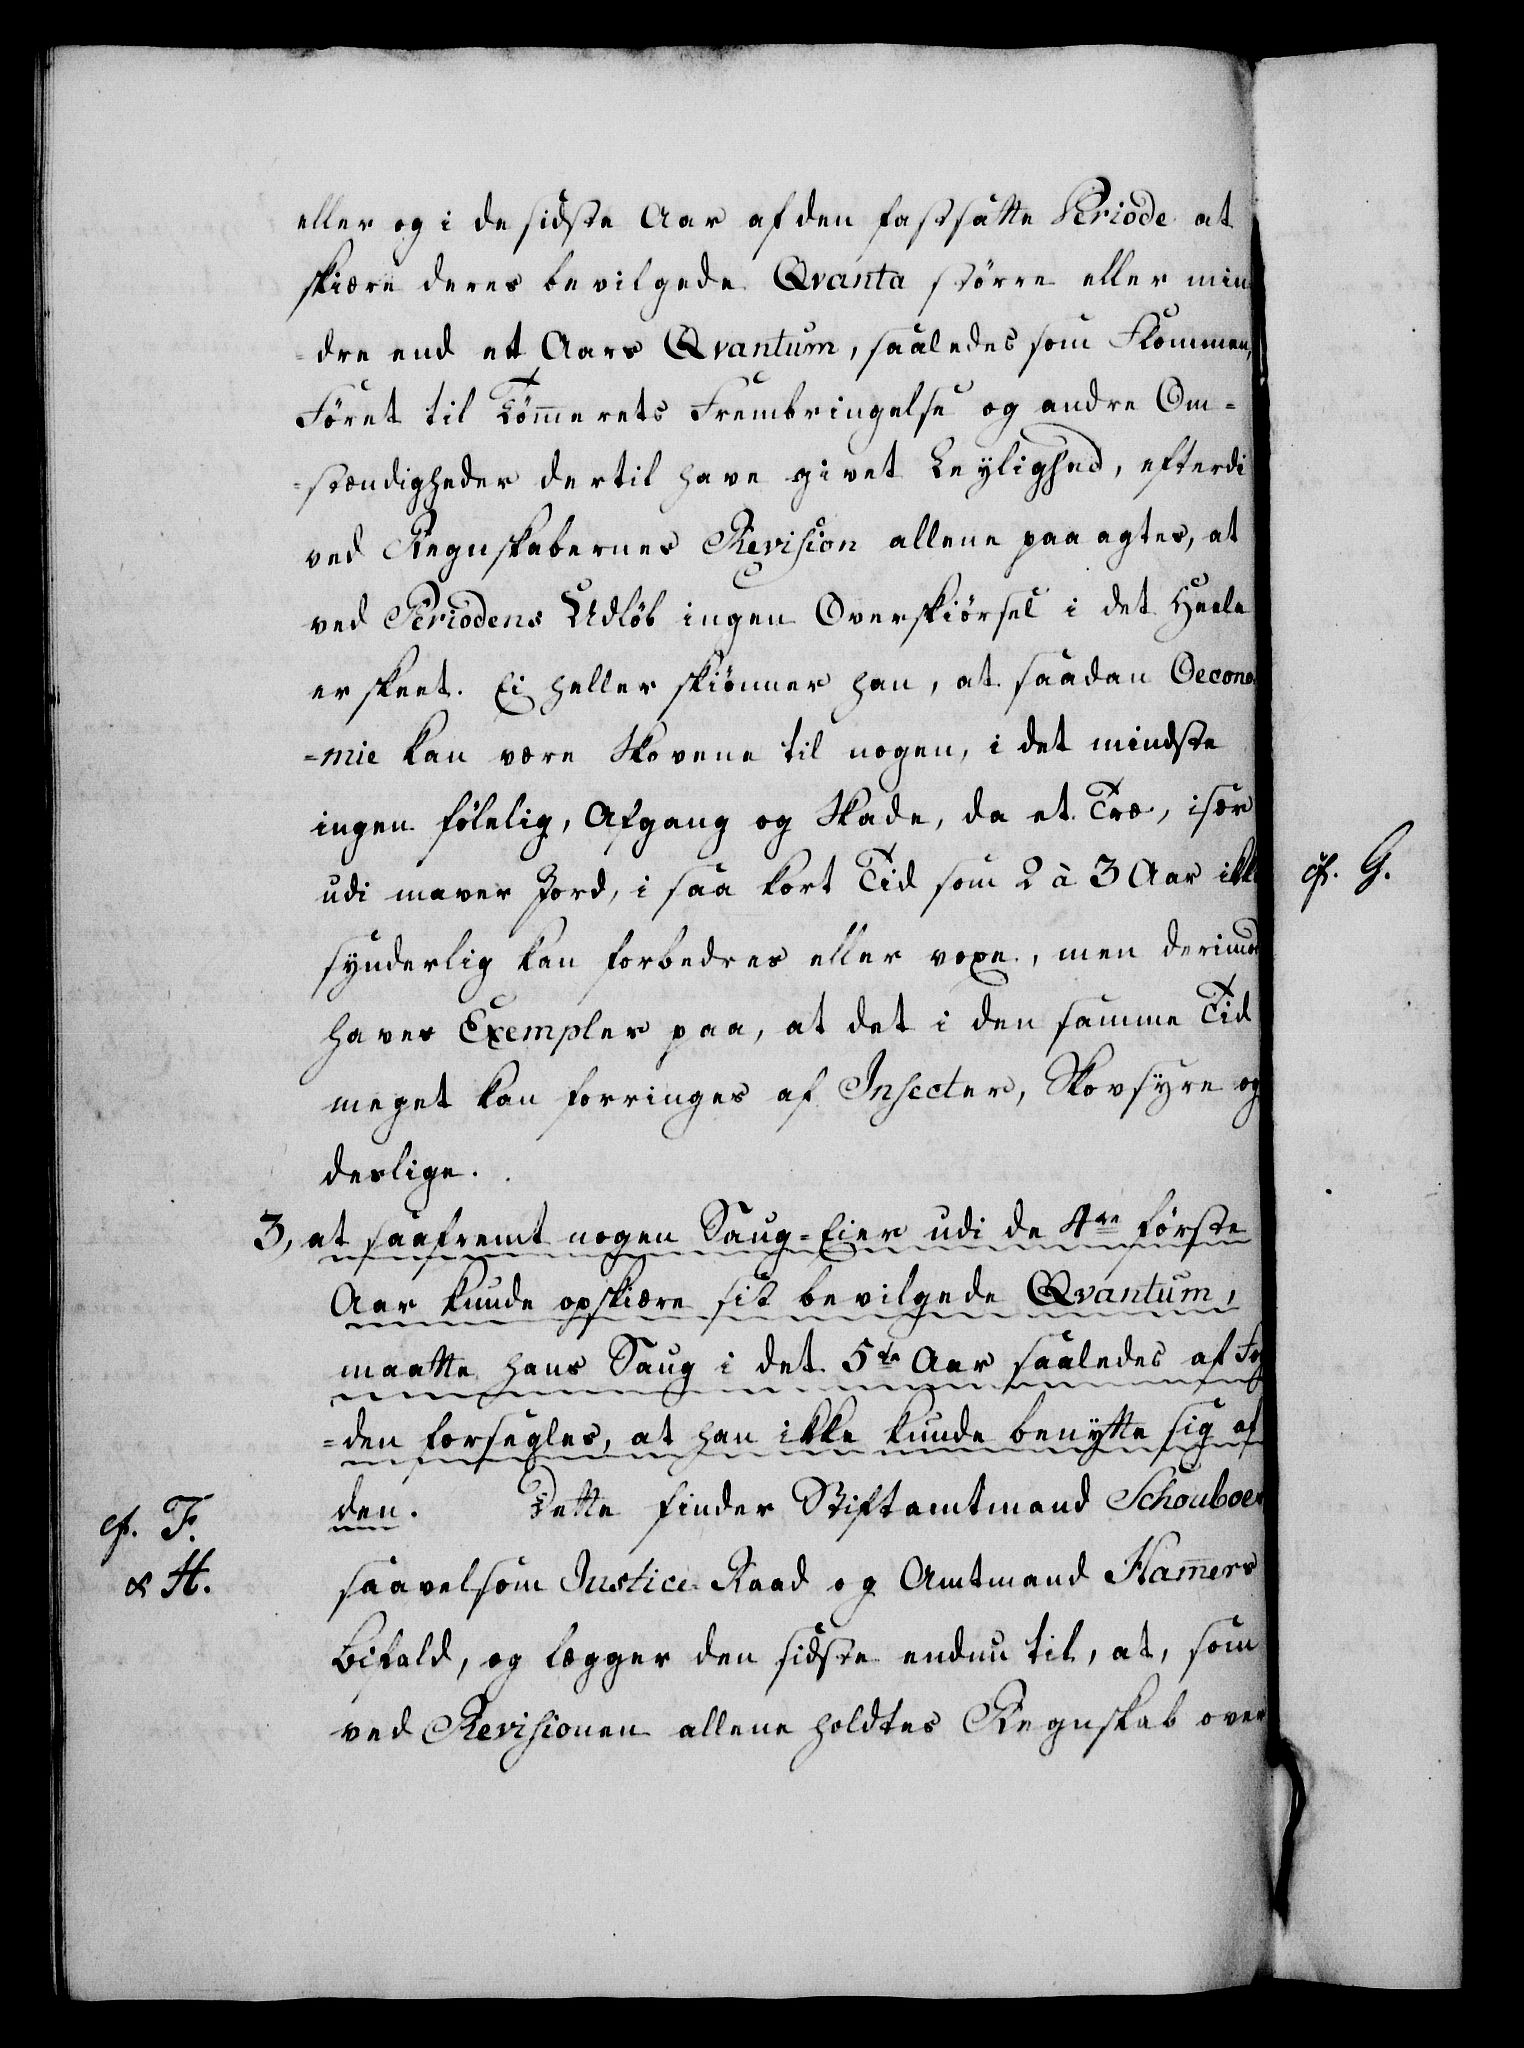 eller og i de sidste Aar af den fastsatte Periode at
skiære deres bevilgede Qvanta större eller min
=dre end et Aars Qvantum, saaledes som Flommen,
Föret til Tömmerets Frembringelse og andre Om=
=stændigheder dertil have givet Leylighed, efterdi
ved Regnskabernes Revision allene paaagtes, at
ved Periodens Udlöb ingen Overskiörsel i det Heele
er skeet. Ei heller skiönner han, at saadan Oecono
=mie kan være Skovene til nogen, i det mindste
ingen fölelig, Afgang og Skade, da et Træ, især
udi maver Jord, i saa kort Tid som 2 à 3 Aar ikke
cfr. G.
synderlig kan forbedres eller voxe, men derimod
haves Exempler paa, at det i den samme Tid
meget kan forringes af Insecter, Skovsyre og
deslige.
3, at saafremt nogen Saug=Eier udi de 4re förste
Aar kunde opskiære sit bevilgede Qvantum,
maatte hans Saug i det 5te Aar saaledes af Fog
=den forsegles, at han ikke kunde benytte sig af
den. Dette finder Stiftamtmand Schouboes
cfr. F.
& H.
saavelsom Justice Raad og Amtmand Hamers
Bifald, og lægger den sidste endnu til, at, som
ved Revisionen allene holdtes Regnskab over